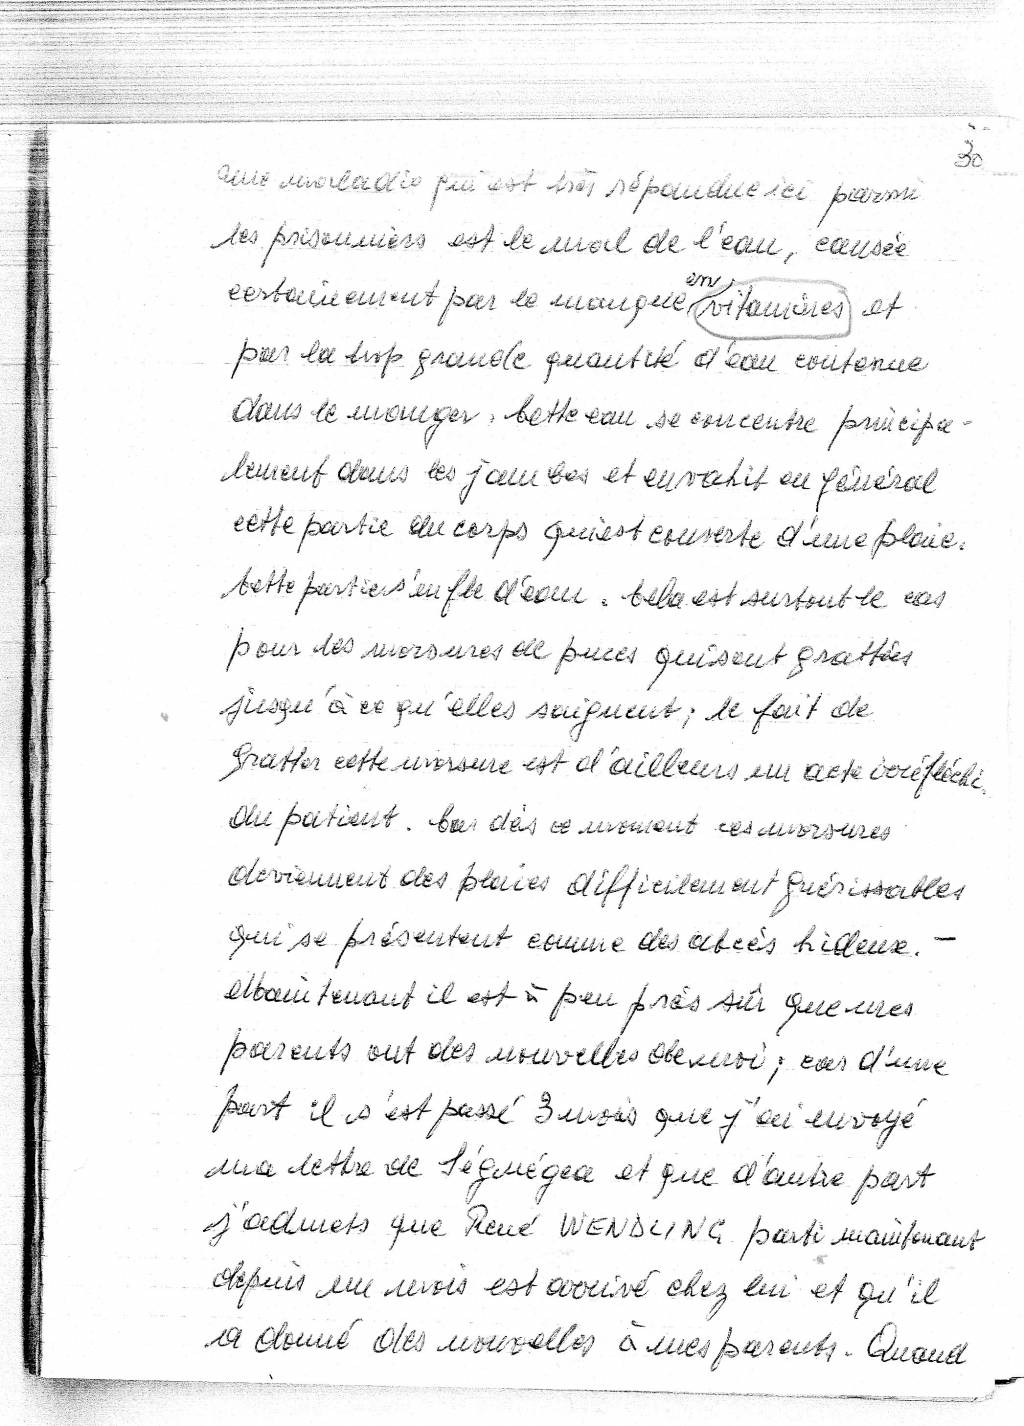 30
une maladie qui est très répandue ici parmi
les prisonniers est le mal de l'eau, causée
certainement par le manque en vitamines et
par la trop grande quantité d'eau contenue
dans le manger. Cette eau se concentre principa-
lement dans les jambes et envahit en général
cette partie du corps qui est couverte d'une plaie.
Cette partie s'enfle d'eau. Cela est surtout le cas
pour les morsures de puces qui sont grattées
jusqu'à ce qu'elles saignent; le fait de
gratter cette morsure est d'ailleurs un acte irréfléchi
du patient. Car dès ce moment ces morsures
deviennent des plaies difficilement guérissables
qui se présentent comme des abcès hideux. –
Maintenant il est à peu près sûr que mes
parents ont des nouvelles de moi; car d'une
part il s'est passé 3 mois que j'ai envoyé
ma lettre de Ségnégea et que d'autre part
j'admets que René WENDLING parti maintenant
depuis un mois est arrivé chez lui et qu'il
a donné des nouvelles à mes parents. Quand